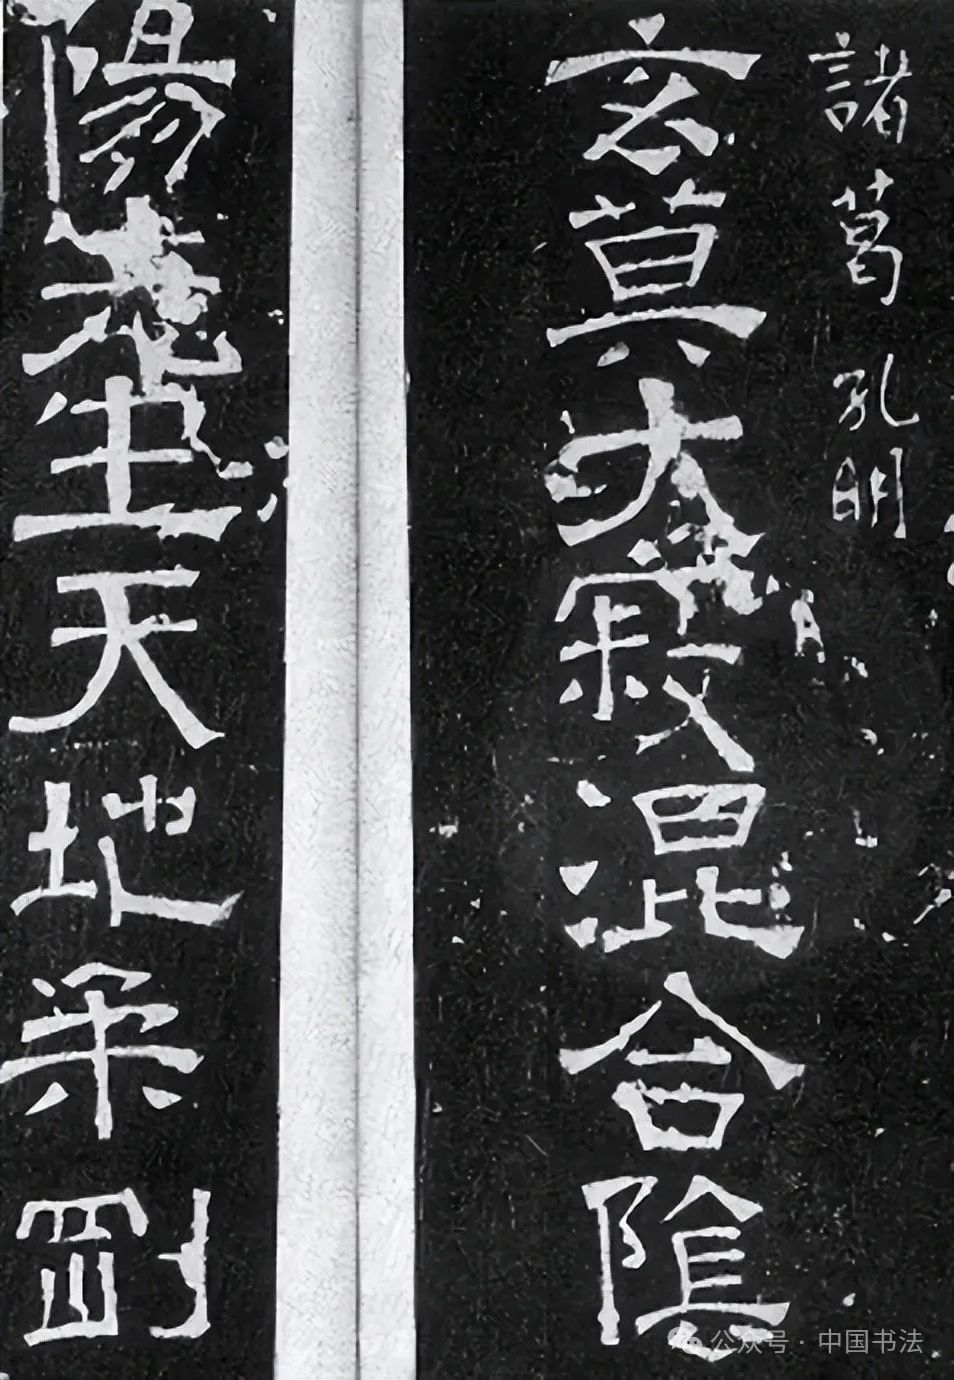 諸葛孔明
玄莫大寂混合陰
陽生天地柔剛
公众号 · 中国书法